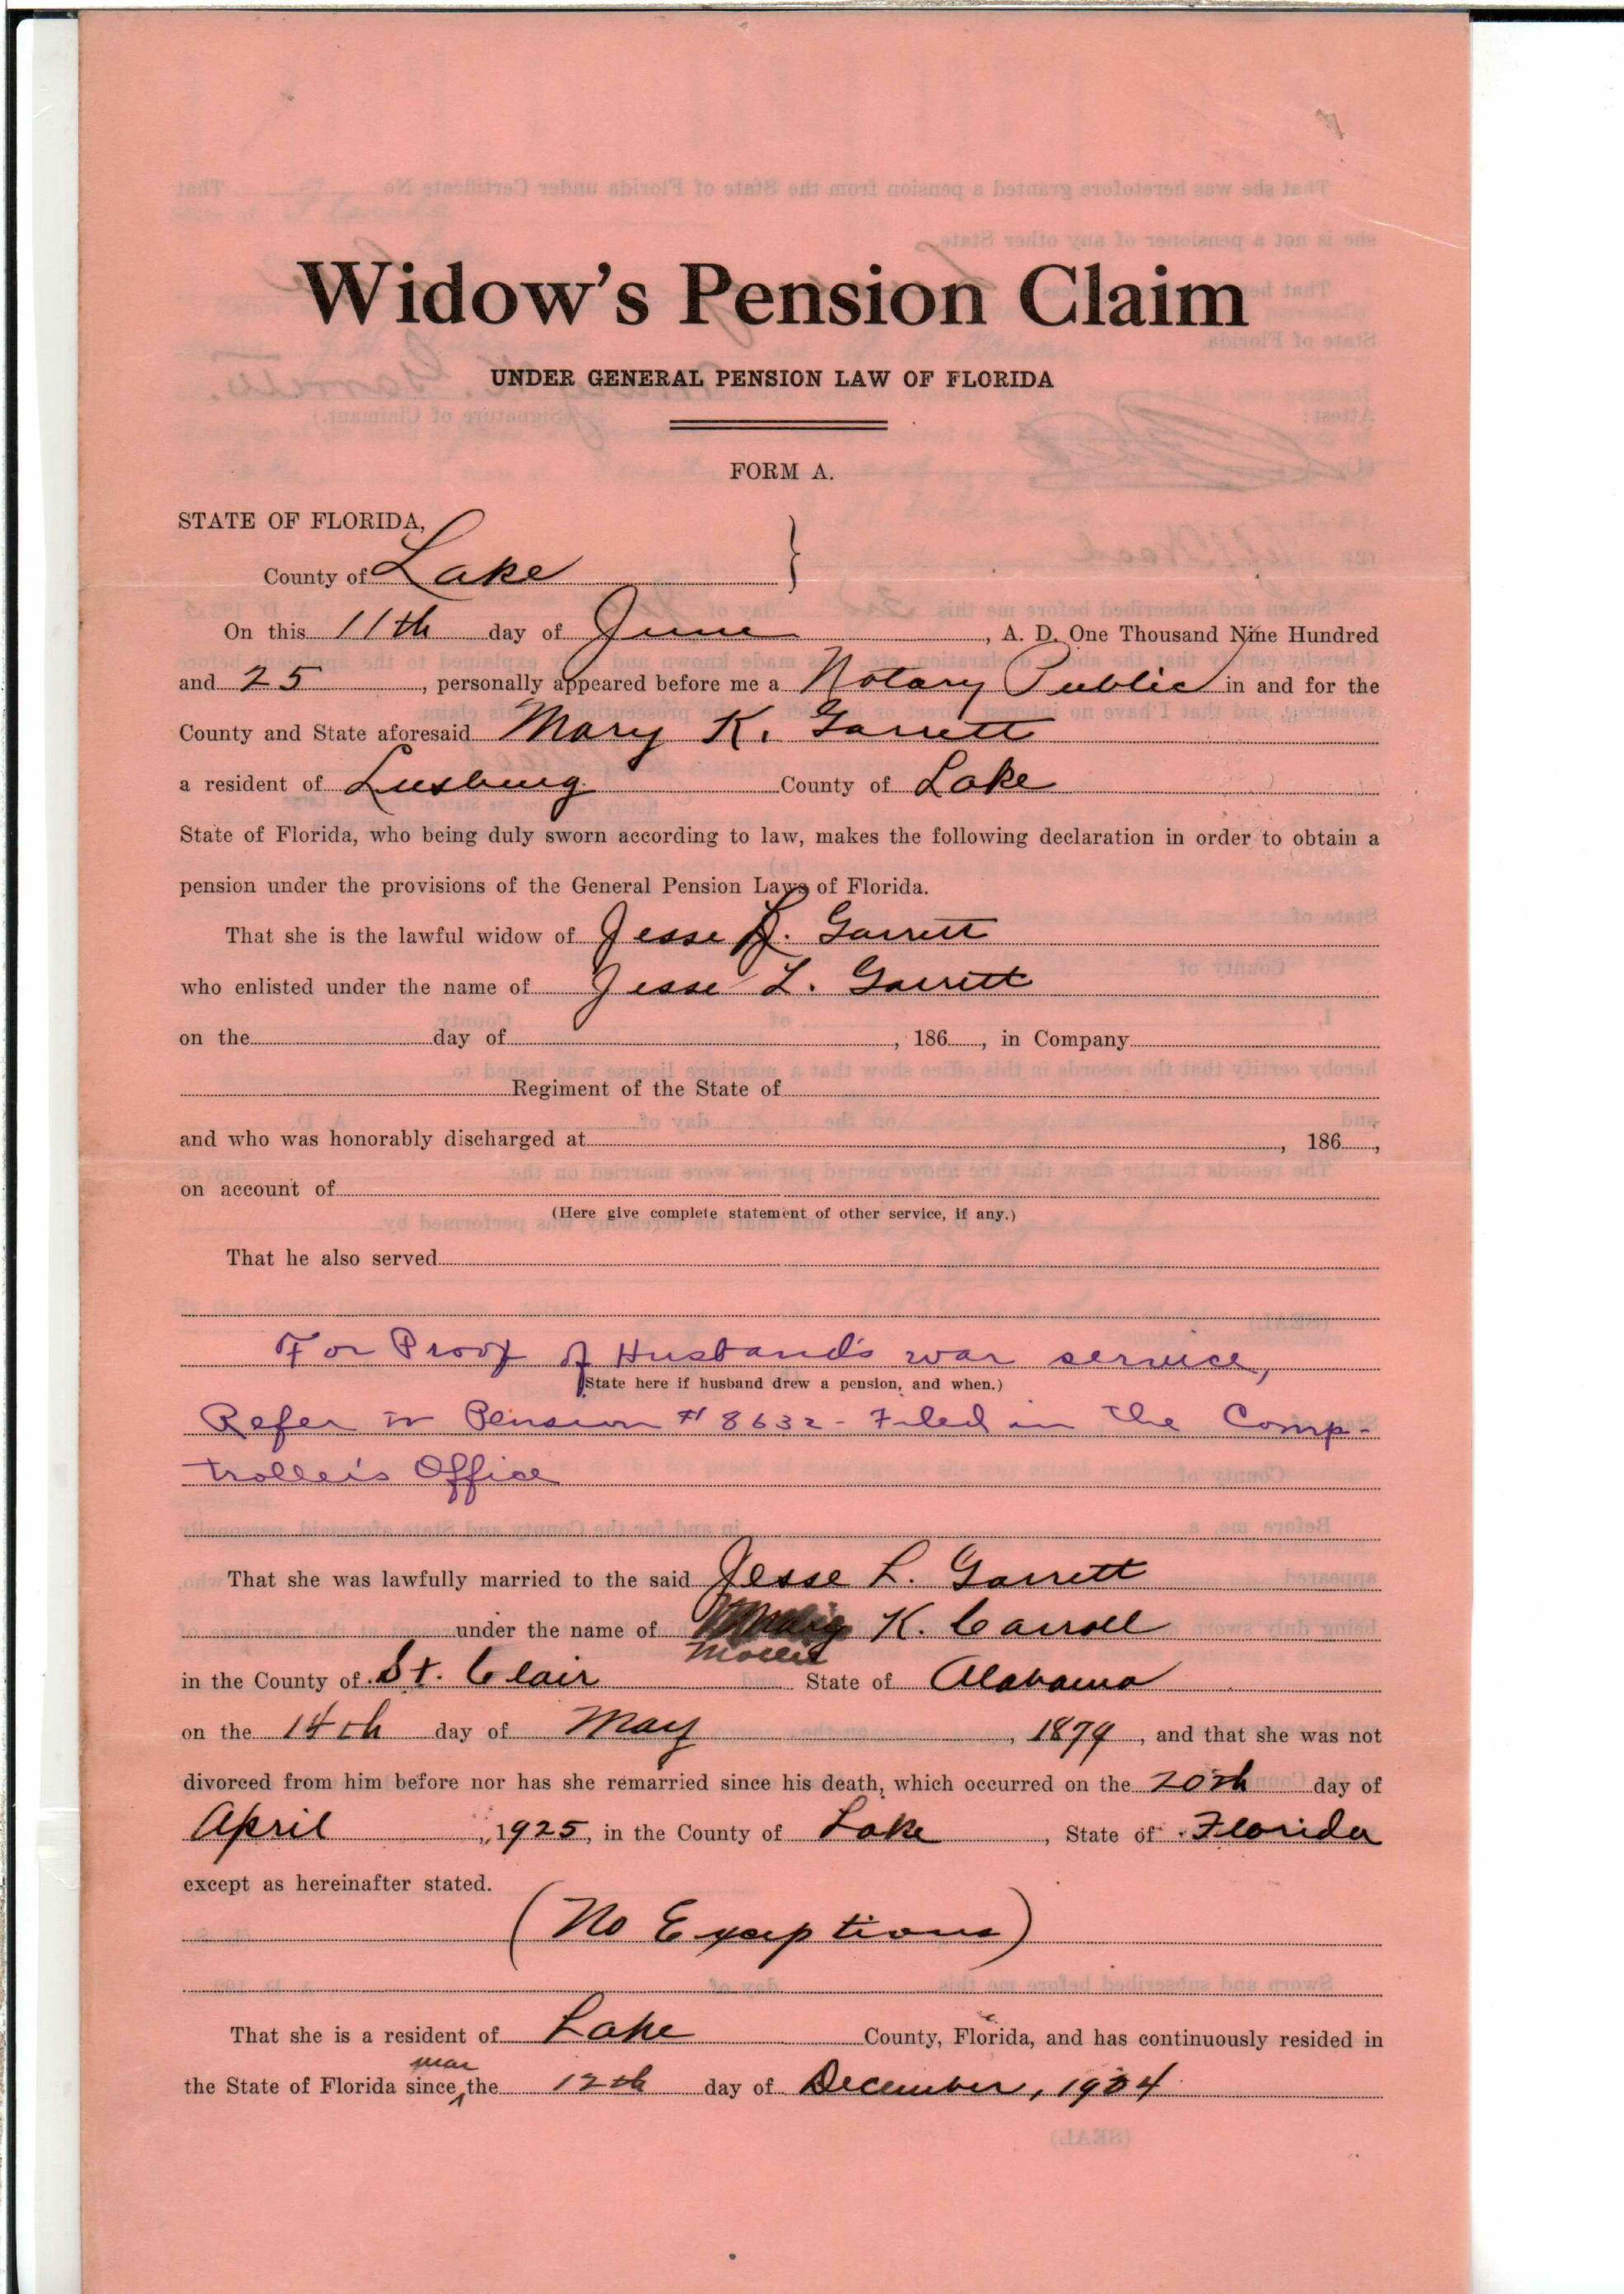 Widow's Pension Claim
UNDER GENERAL PENSION LAW OF FLORIDA
FORM A.
STATE OF FLORIDA,
County of Lake
On this 11th day of June, A. D. One Thousand Nine Hundred
and 25, personally appeared before me a Notary Public in and for the
County and State aforesaid Mary K. Garrett
a resident of Leesburg County of Lake
State of Florida, who being duly sworn according to law, makes the following declaration in order to obtain a
pension under the provisions of the General Pension Laws of Florida.
That she is the lawful widow of Jesse L. Garrett
who enlisted under the name of Jesse L. Garrett
on the day of , 186 , in Company
Regiment of the State of
and who was honorably discharged at , 186 ,
on account of
(Here give complete statement of other service, if any.)
That he also served
For Proof of Husband's war service,
(State here if husband drew a pension, and when.)
Refer to Pension # 8632 - Filed in the Comp-
troller's Office
That she was lawfully married to the said Jesse L. Garrett
under the name of K. Carroll
Mollie
in the County of St. Clair State of Alabama
on the 14th day of May , 1879 , and that she was not
divorced from him before nor has she remarried since his death, which occurred on the 20th day of
April , 1925, in the County of Lake , State of Florida
except as hereinafter stated.
(No Exceptions)
That she is a resident of Lake County, Florida, and has continuously resided in
the State of Florida since the 12th day of December,